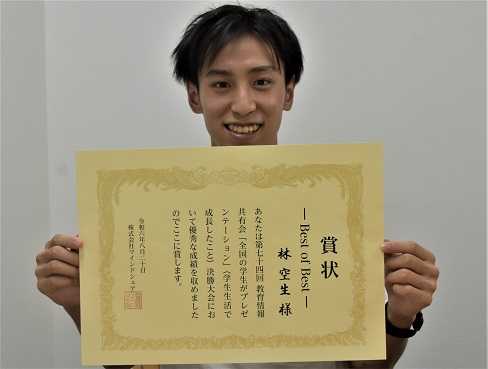 賞状
― Best of Best ―
林 空生 様
あなたは第七十四回 教育情報
共有会「全国の学生がプレゼ
ンテーション」〈学生生活で
成長したこと〉決勝大会にお
いて優秀な成績を収めました
のでここに賞します。
令和六年八月三十日
株式会社マインドシェア